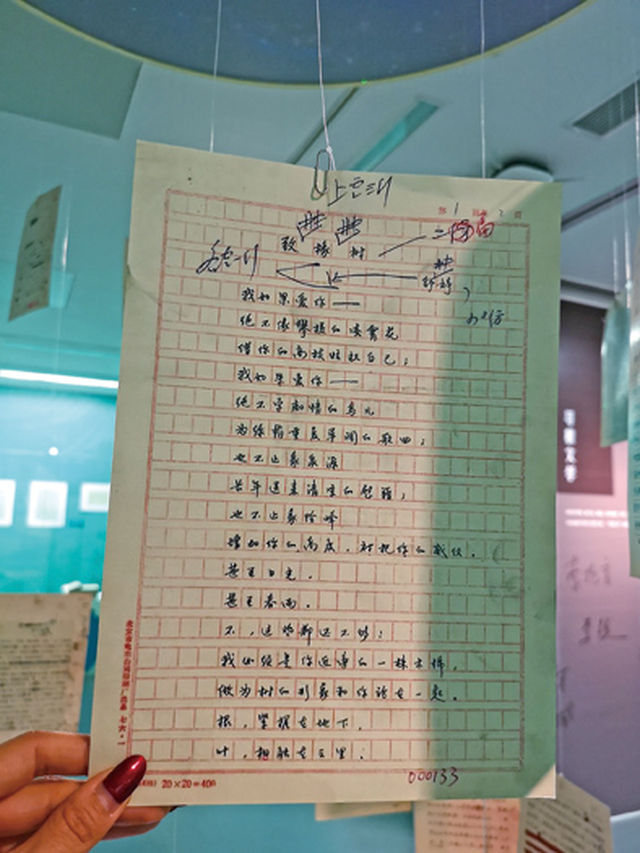 第 1 页 2 页
致橡树
舒婷
我如果爱你——
绝不像攀援的凌霄花
借你的高枝炫耀自己；
我如果爱你——
绝不学痴情的鸟儿
为绿荫重复单调的歌曲；
也不止象泉源
长年送来清凉的慰藉；
也不止象险峰
增加你的高度，衬托你的威仪。
甚至日光。
甚至春雨。
不，这些都还不够！
我必须是你近旁的一株木棉，
做为树的形象和你站在一起。
根，紧握在地下，
叶，相触在云里；
北京市电车公司印刷厂出品 七六·一
20×20=400
000133